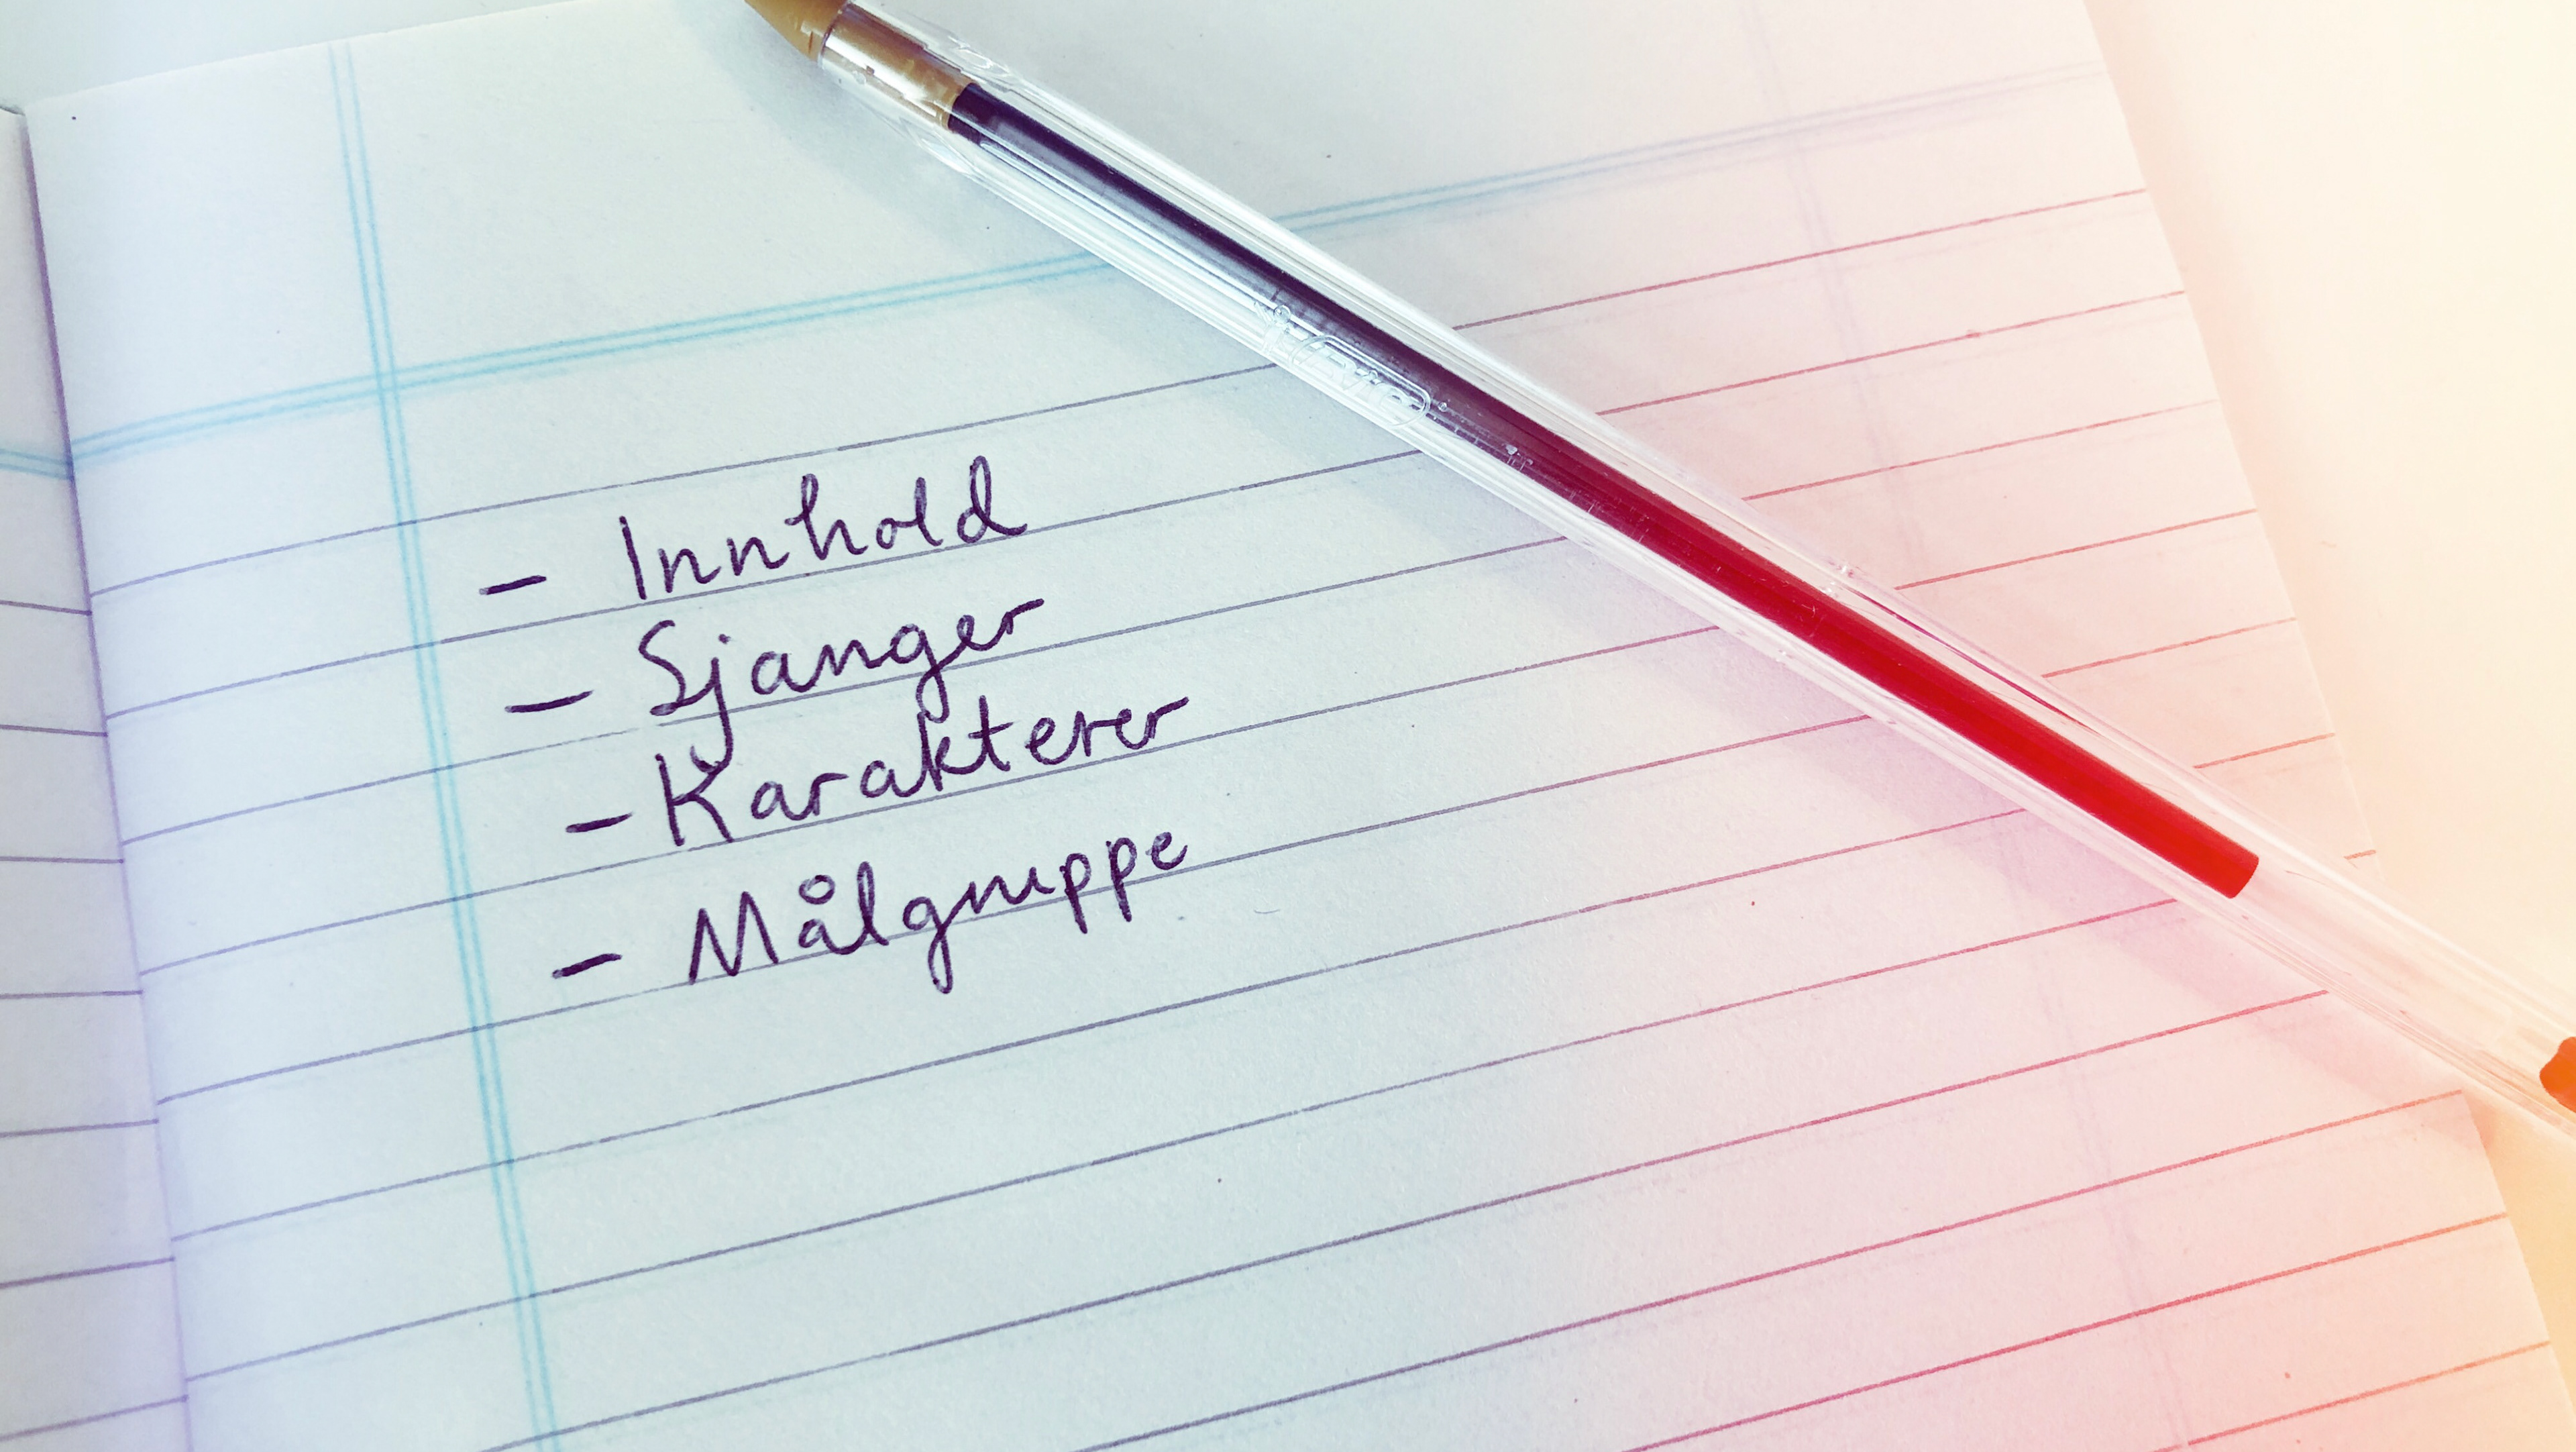 - Innhold
- Sjanger
- Karakterer
- Målgruppe